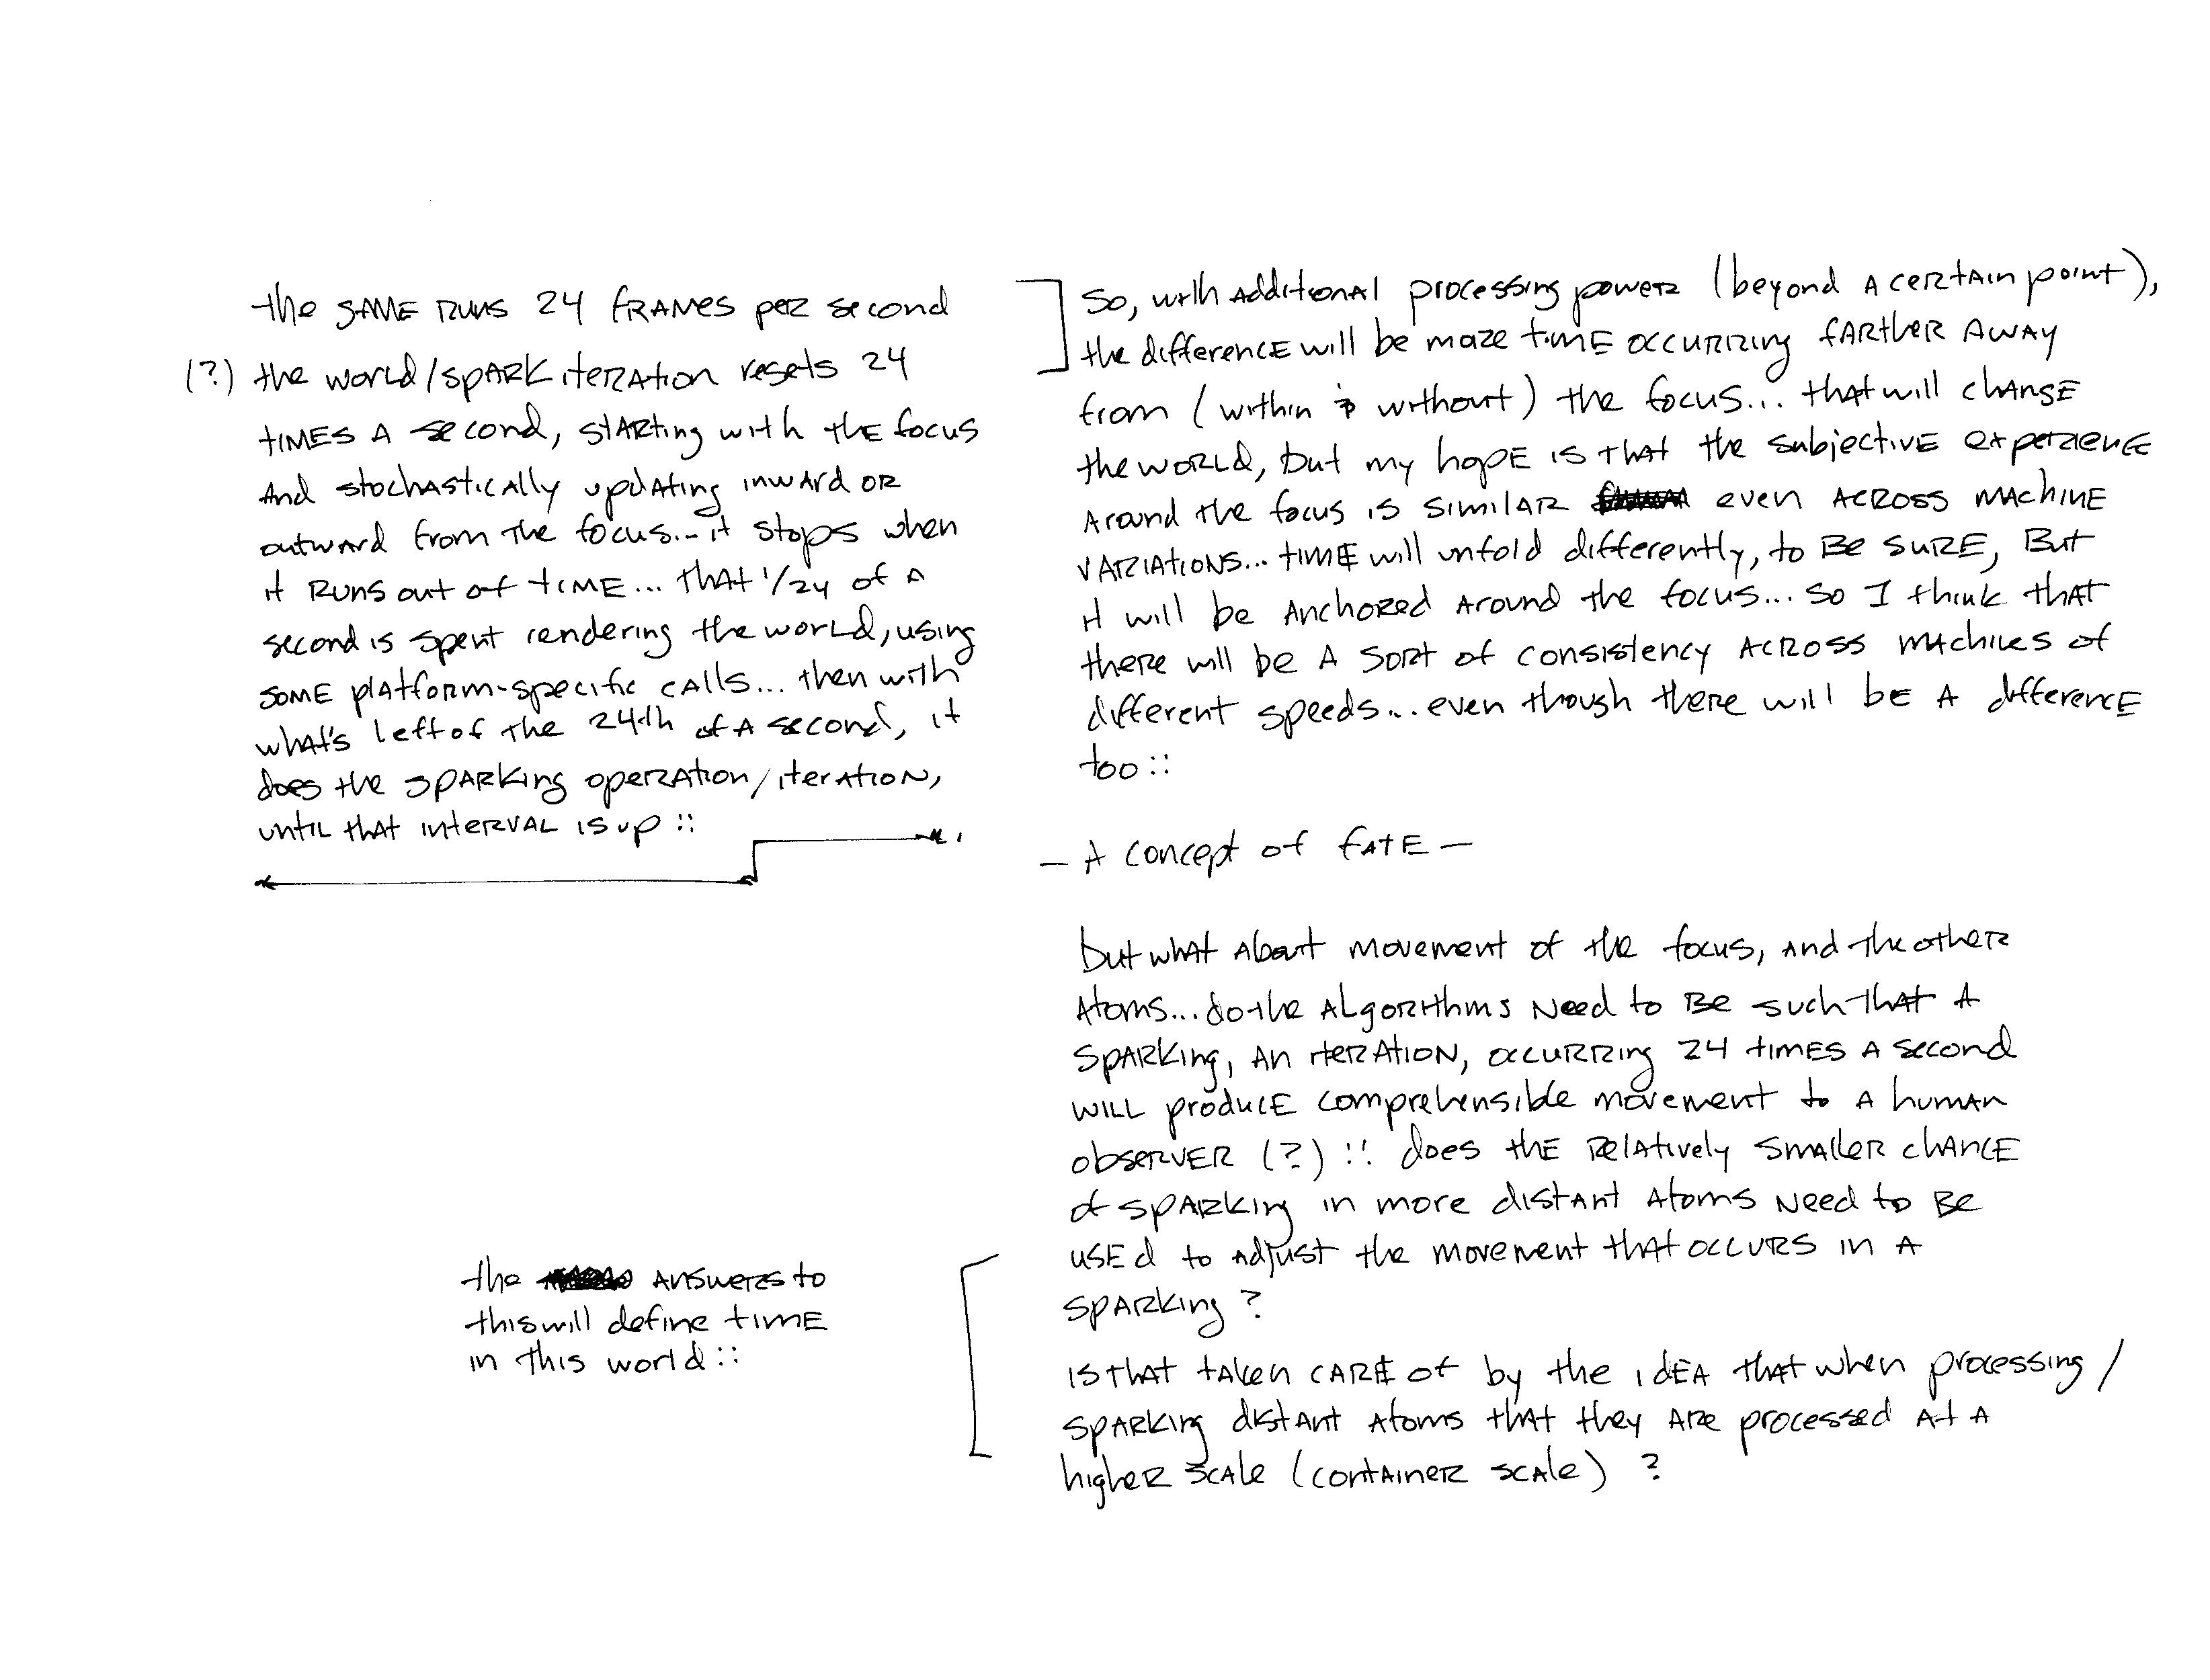 the game runs 24 frames per second
(?) the world/spark iteration resets 24
times a second, starting with the focus
and stochastically updating inward or
outward from the focus... it stops when
it runs out of time... that 1/24 of a
second is spent rendering the world, using
some platform-specific calls... then with
what's left of the 24th of a second, it
does the sparking operation/iteration,
until that interval is up ::
So, with additional processing power (beyond a certain point),
the difference will be more time occurring farther away
from (within & without) the focus... that will change
the world, but my hope is that the subjective experience
around the focus is similar even across machine
variations... time will unfold differently, to be sure, but
it will be anchored around the focus... so I think that
there will be a sort of consistency across machines of
different speeds... even though there will be a difference
too ::
— A concept of fate —
but what about movement of the focus, and the other
atoms... do the algorithms need to be such that a
sparking, an iteration, occurring 24 times a second
will produce comprehensible movement to a human
observer (?) :: does the relatively smaller chance
of sparking in more distant atoms need to be
used to adjust the movement that occurs in a
sparking ?
is that taken care of by the idea that when processing/
sparking distant atoms that they are processed at a
higher scale (container scale) ?
the answers to
this will define time
in this world ::